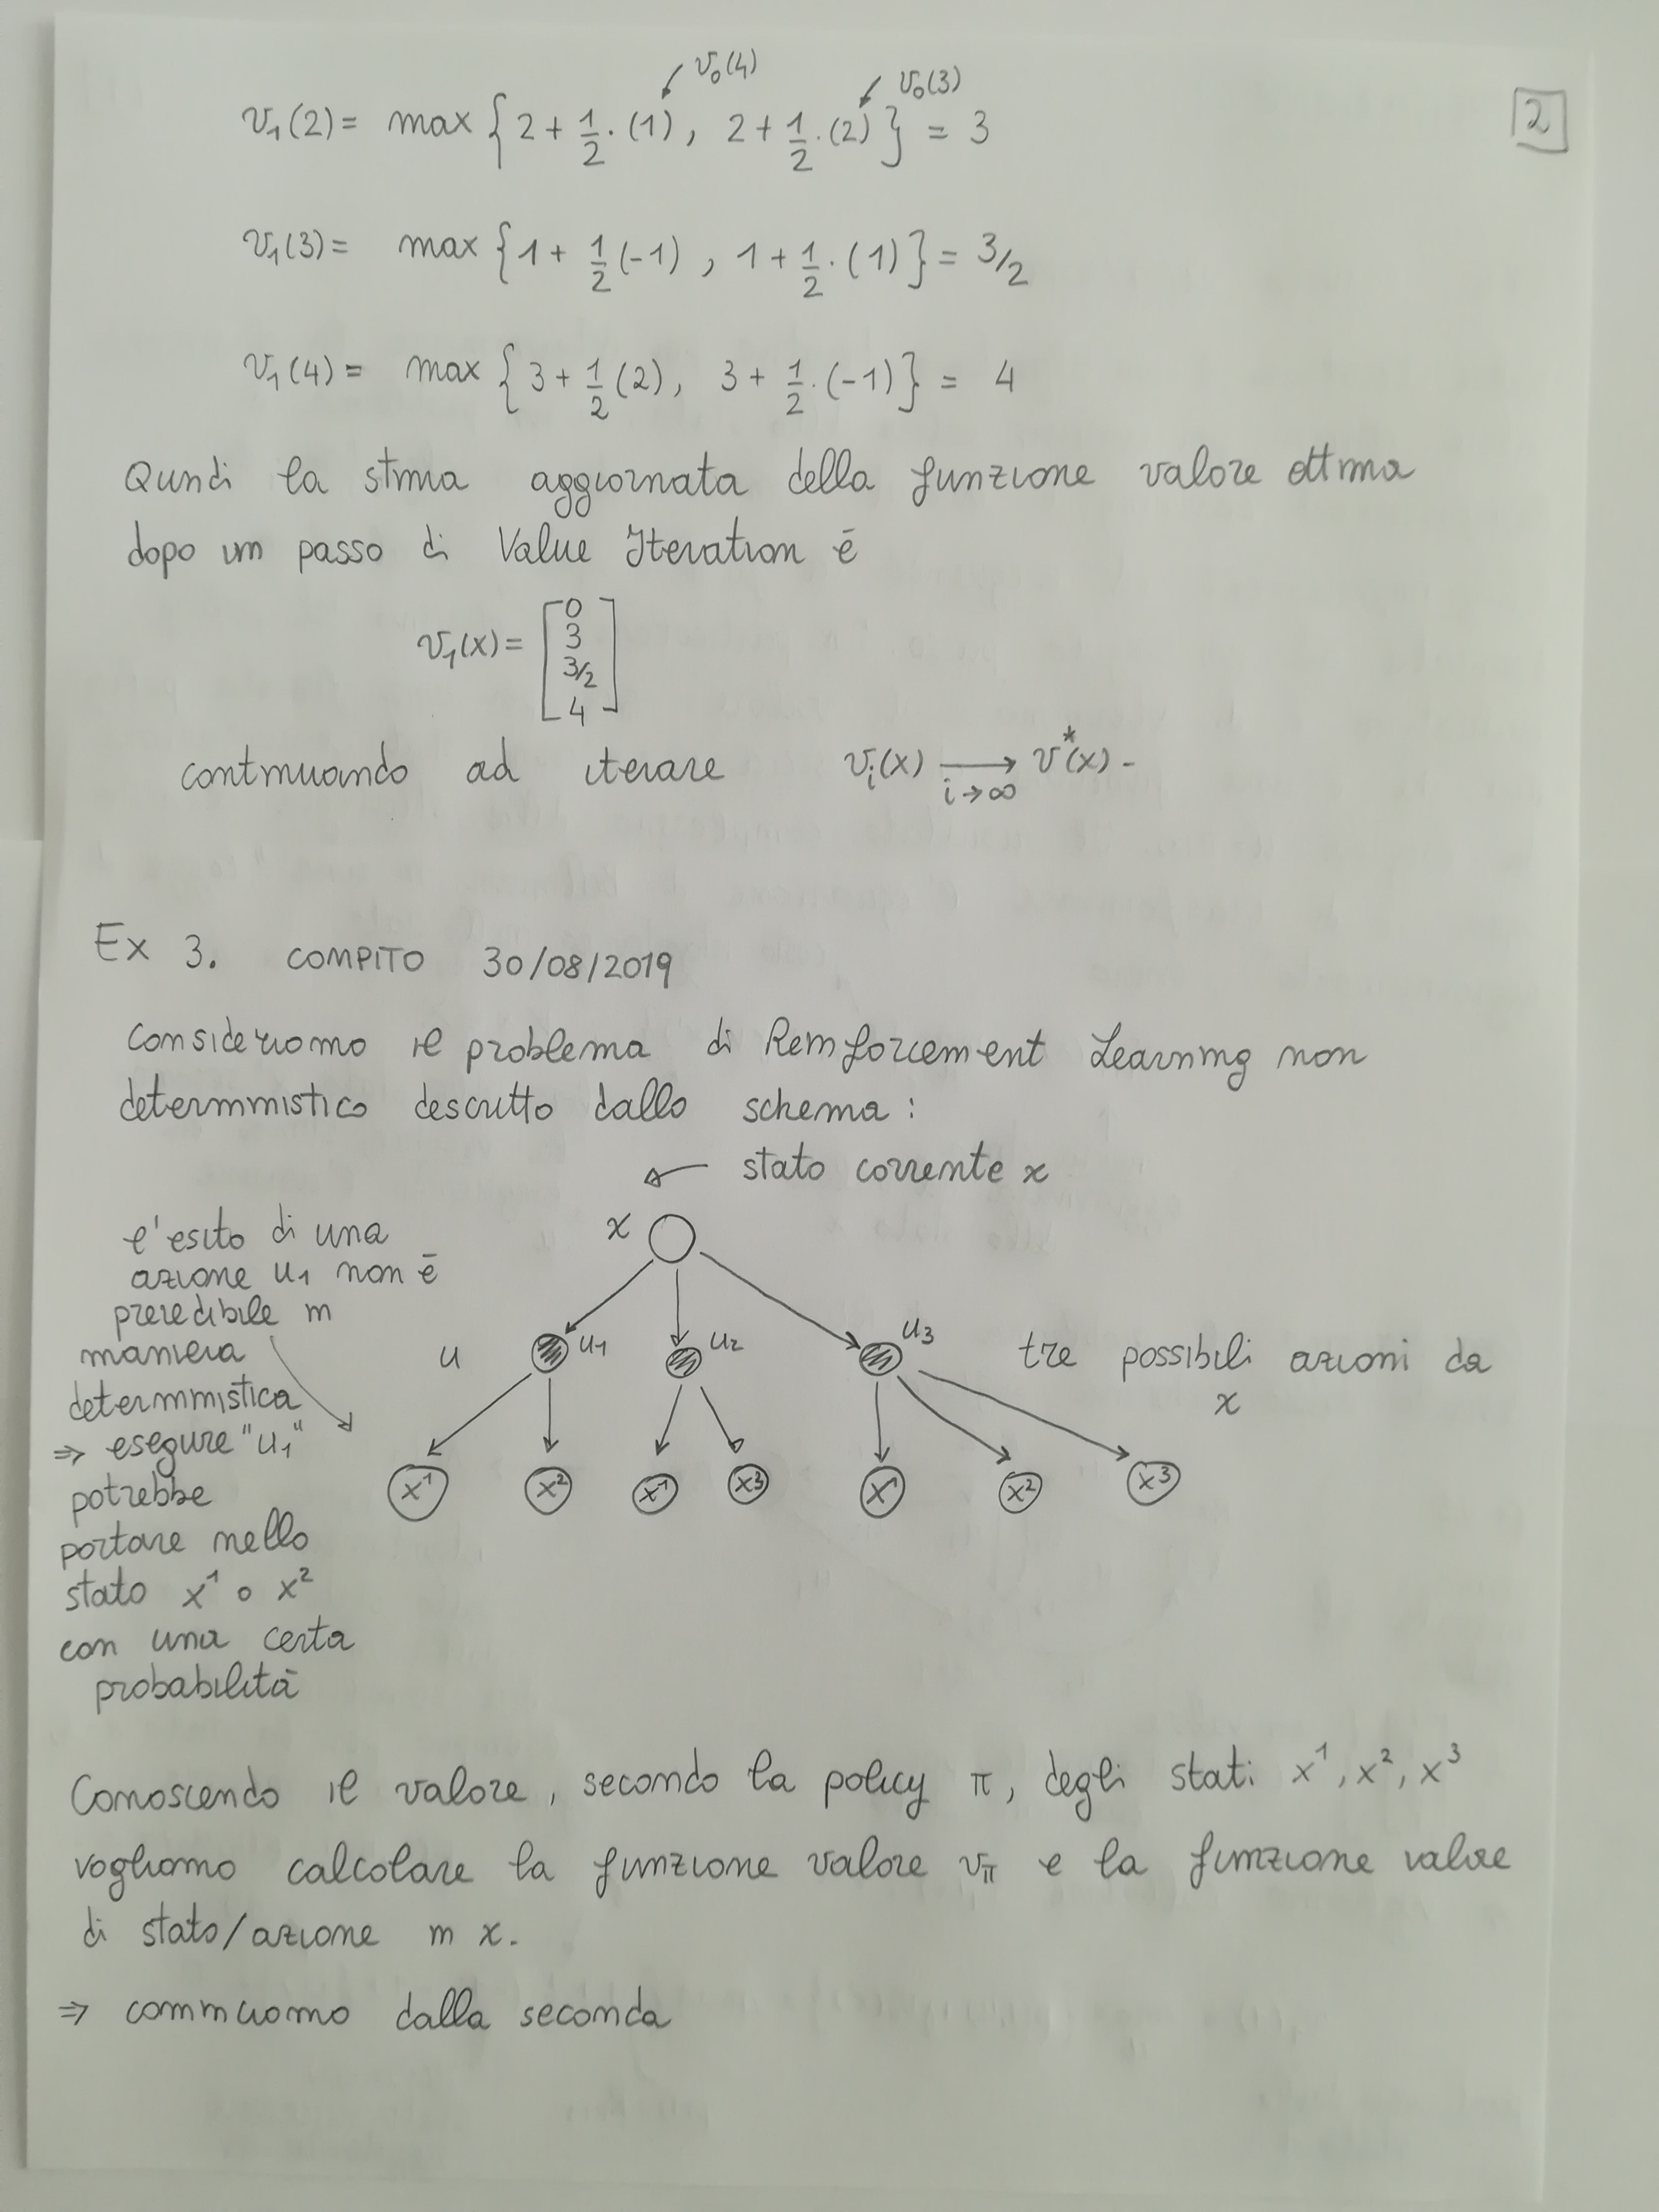 2
v₀(4) v₀(3)
v₁(2) = max { 2 + 1/2 · (1), 2 + 1/2 · (2) } = 3
v₁(3) = max { 1 + 1/2 (-1), 1 + 1/2 · (1) } = 3/2
v₁(4) = max { 3 + 1/2 (2), 3 + 1/2 · (-1) } = 4
Quindi la stima aggiornata della funzione valore ottima
dopo un passo di Value Iteration è
v₁(x) = [ 0
3
3/2
4 ]
continuando ad iterare vᵢ(x) → v*(x) -
i → ∞
Ex 3. COMPITO 30/08/2019
Consideriamo il problema di Reinforcement Learning non
deterministico descritto dallo schema:
← stato corrente x
x
l'esito di una
azione u₁ non è
predibile in
maniera
deterministica
⇒ eseguire "u₁"
potrebbe
portare nello
stato x¹ o x²
con una certa
probabilità
u u₁ u₂ u₃
tre possibili azioni da
x
x¹ x² x¹ x³ x¹ x² x³
Conoscendo il valore, secondo la policy π, degli stati x¹, x², x³
vogliamo calcolare la funzione valore vπ e la funzione valore
di stato/azione in x.
⇒ cominciamo dalla seconda